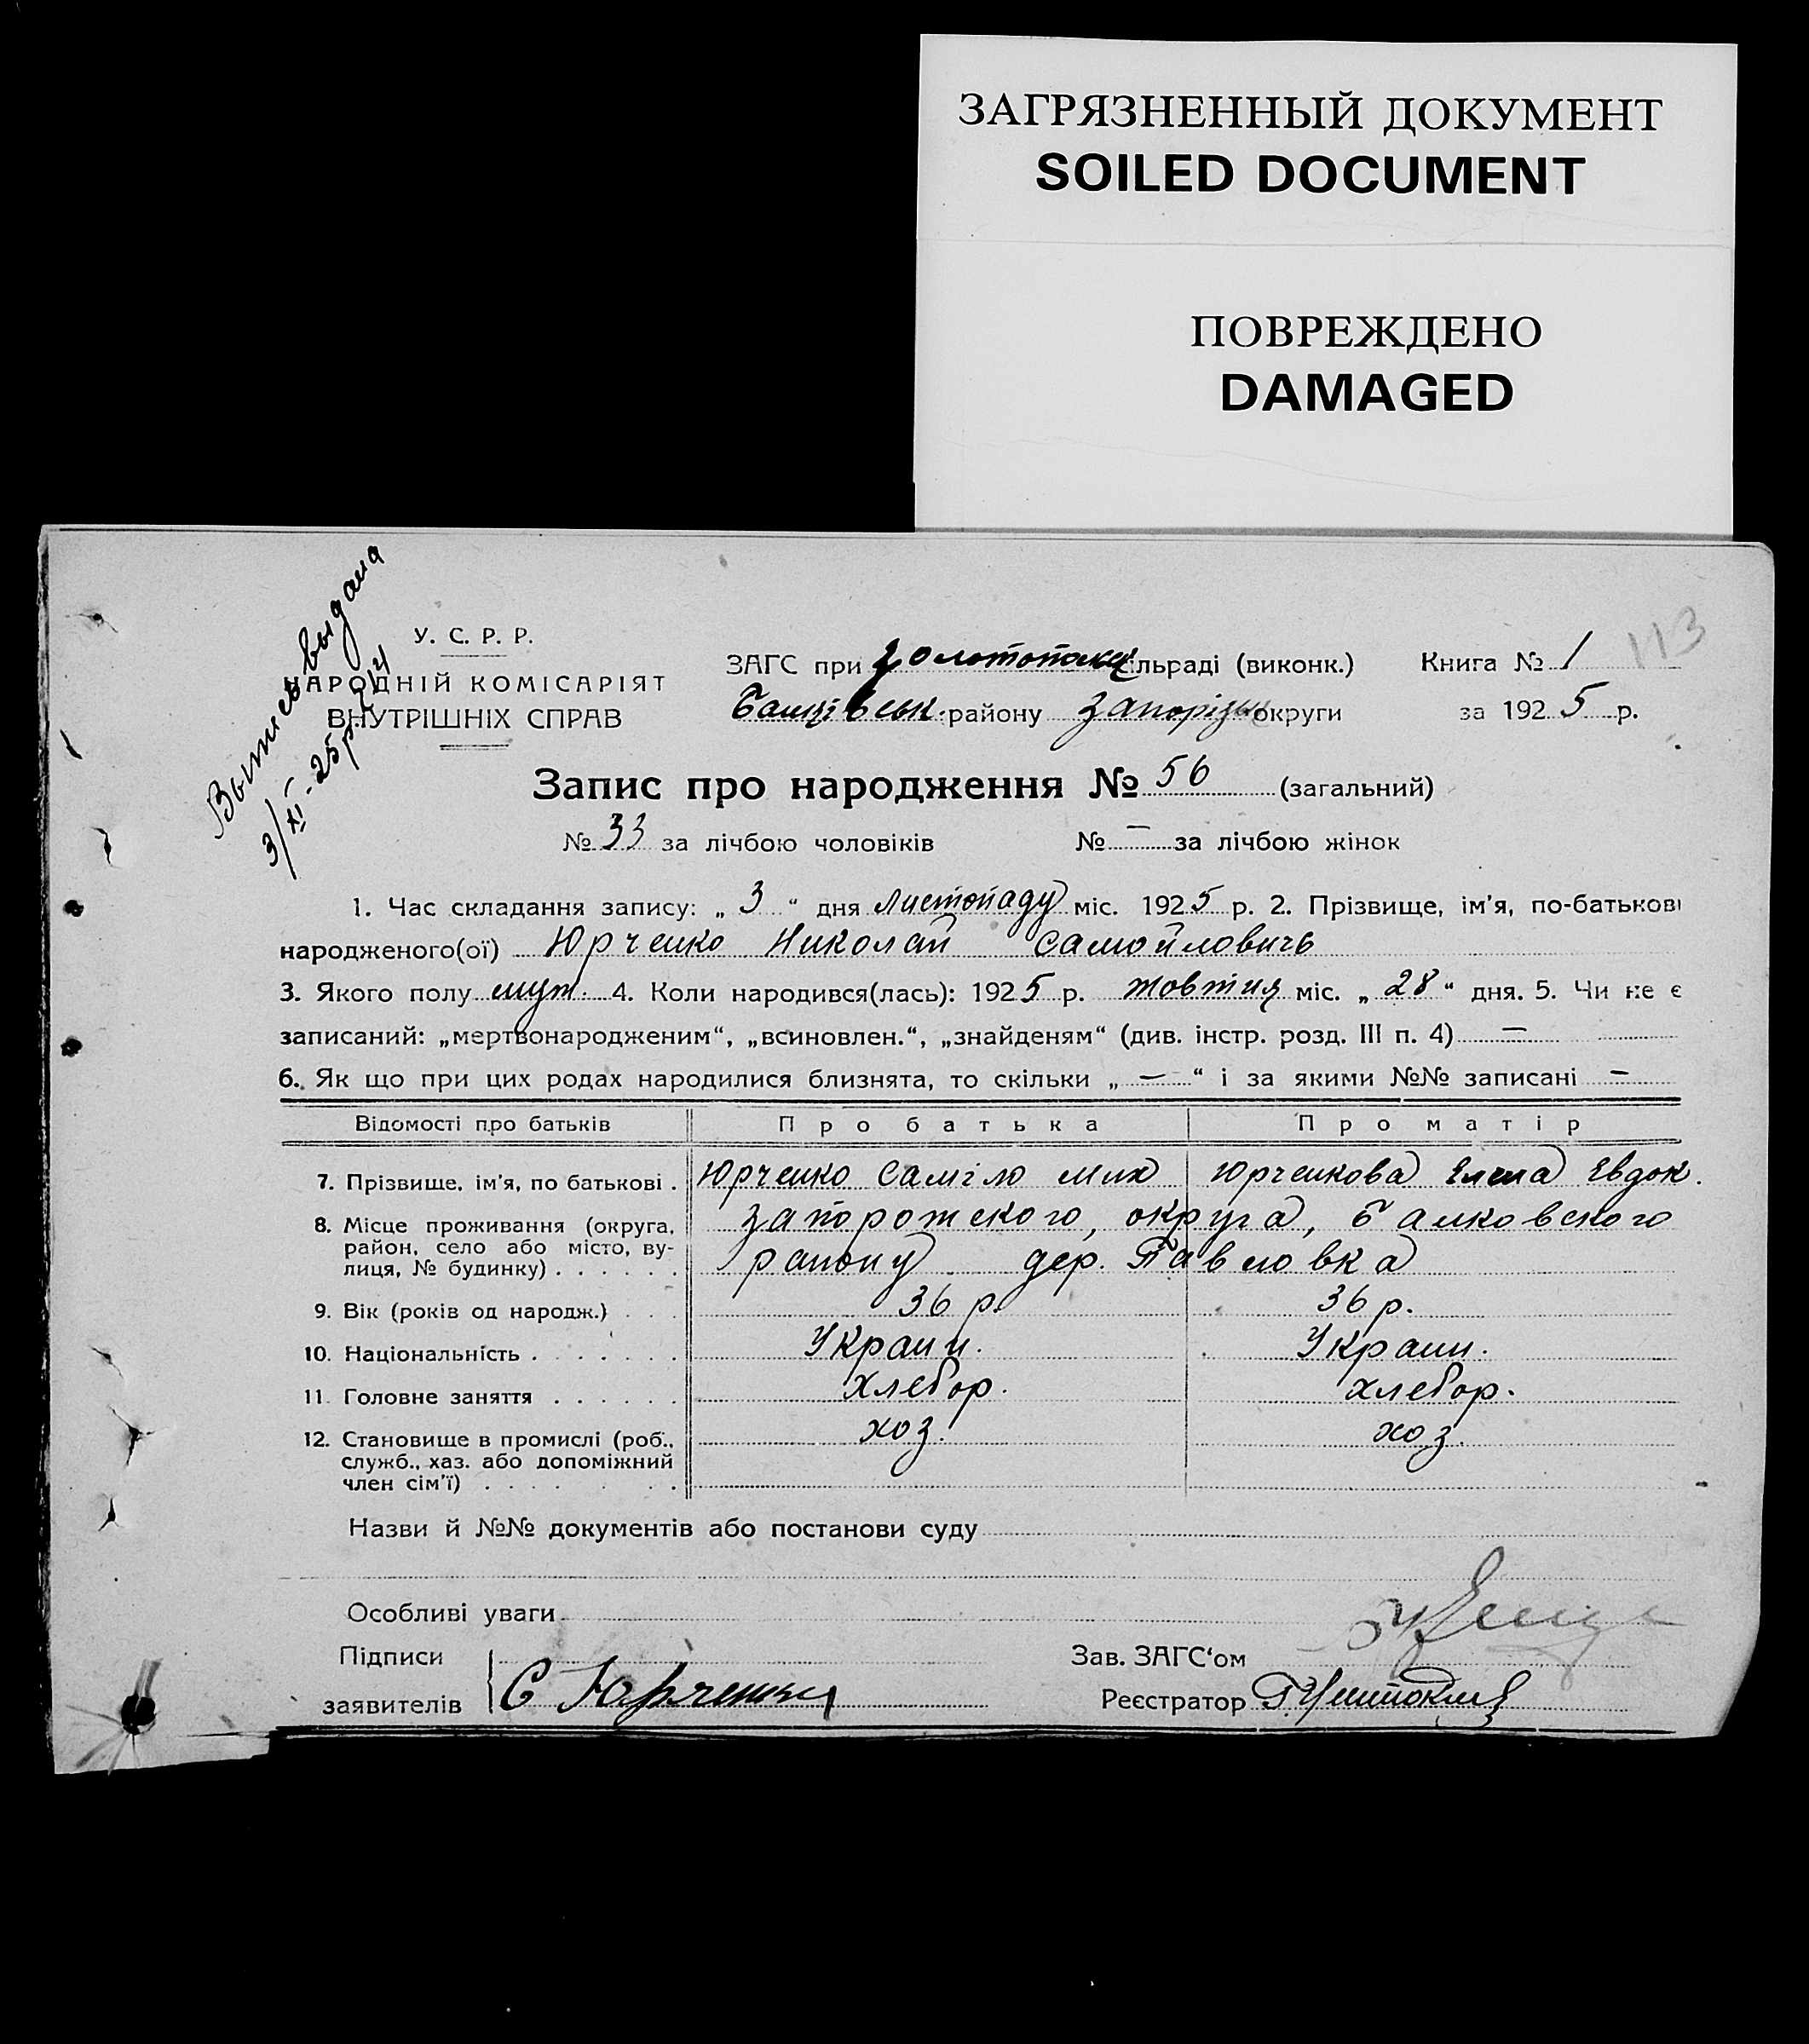 ЗАГРЯЗНЕННЫЙ ДОКУМЕНТ
SOILED DOCUMENT
ПОВРЕЖДЕНО
DAMAGED
Выпись выдана
3/XI-25р.
У. С. Р. Р.
НАРОДНІЙ КОМІСАРІЯТ
ВНУТРІШНІХ СПРАВ
ЗАГС при Золотопольск сільраді (виконк.) Книга № 1 113
району Запорізьк округи за 1925 р.
Запис про народження № 56 (загальний)
№ 33 за лічбою чоловіків № — за лічбою жінок
1. Час складання запису: „ 3 “ дня листопаду міс. 1925 р. 2. Прізвище, ім'я, по-батькові
народженого(ої) Юрченко Николай Самойловичь
3. Якого полу муж. 4. Коли народився(лась): 1925 р. жовтня міс. „ 28 “ дня. 5. Чи не є
записаний: „мертвонародженим“, „всиновлен.“, „знайденям“ (див. інстр. розд. III п. 4) —
6. Як що при цих родах народилися близнята, то скільки „ — “ і за якими №№ записані —
Відомості про батьків Про батька Про матір
7. Прізвище, ім'я, по батькові . Юрченко Саміло Мих Юрченкова Елена Евдок.
8. Місце проживання (округа, Запорожского, округа, Балковского
район, село або місто, ву-
лиця, № будинку) . . . . . . району дер. Павловка
9. Вік (років од народж.) . . . 36 р. 36 р.
10. Національність . . . . . . . Украин. Украин.
11. Головне заняття . . . . . . хлебор. хлебор.
12. Становище в промислі (роб., хоз. хоз.
служб., хаз. або допоміжний
член сім'ї) . . . . . . .
Назви й №№ документів або постанови суду
Особливі уваги
Підписи Зав. ЗАГС'ом
заявителів С Юрченко Реєстратор